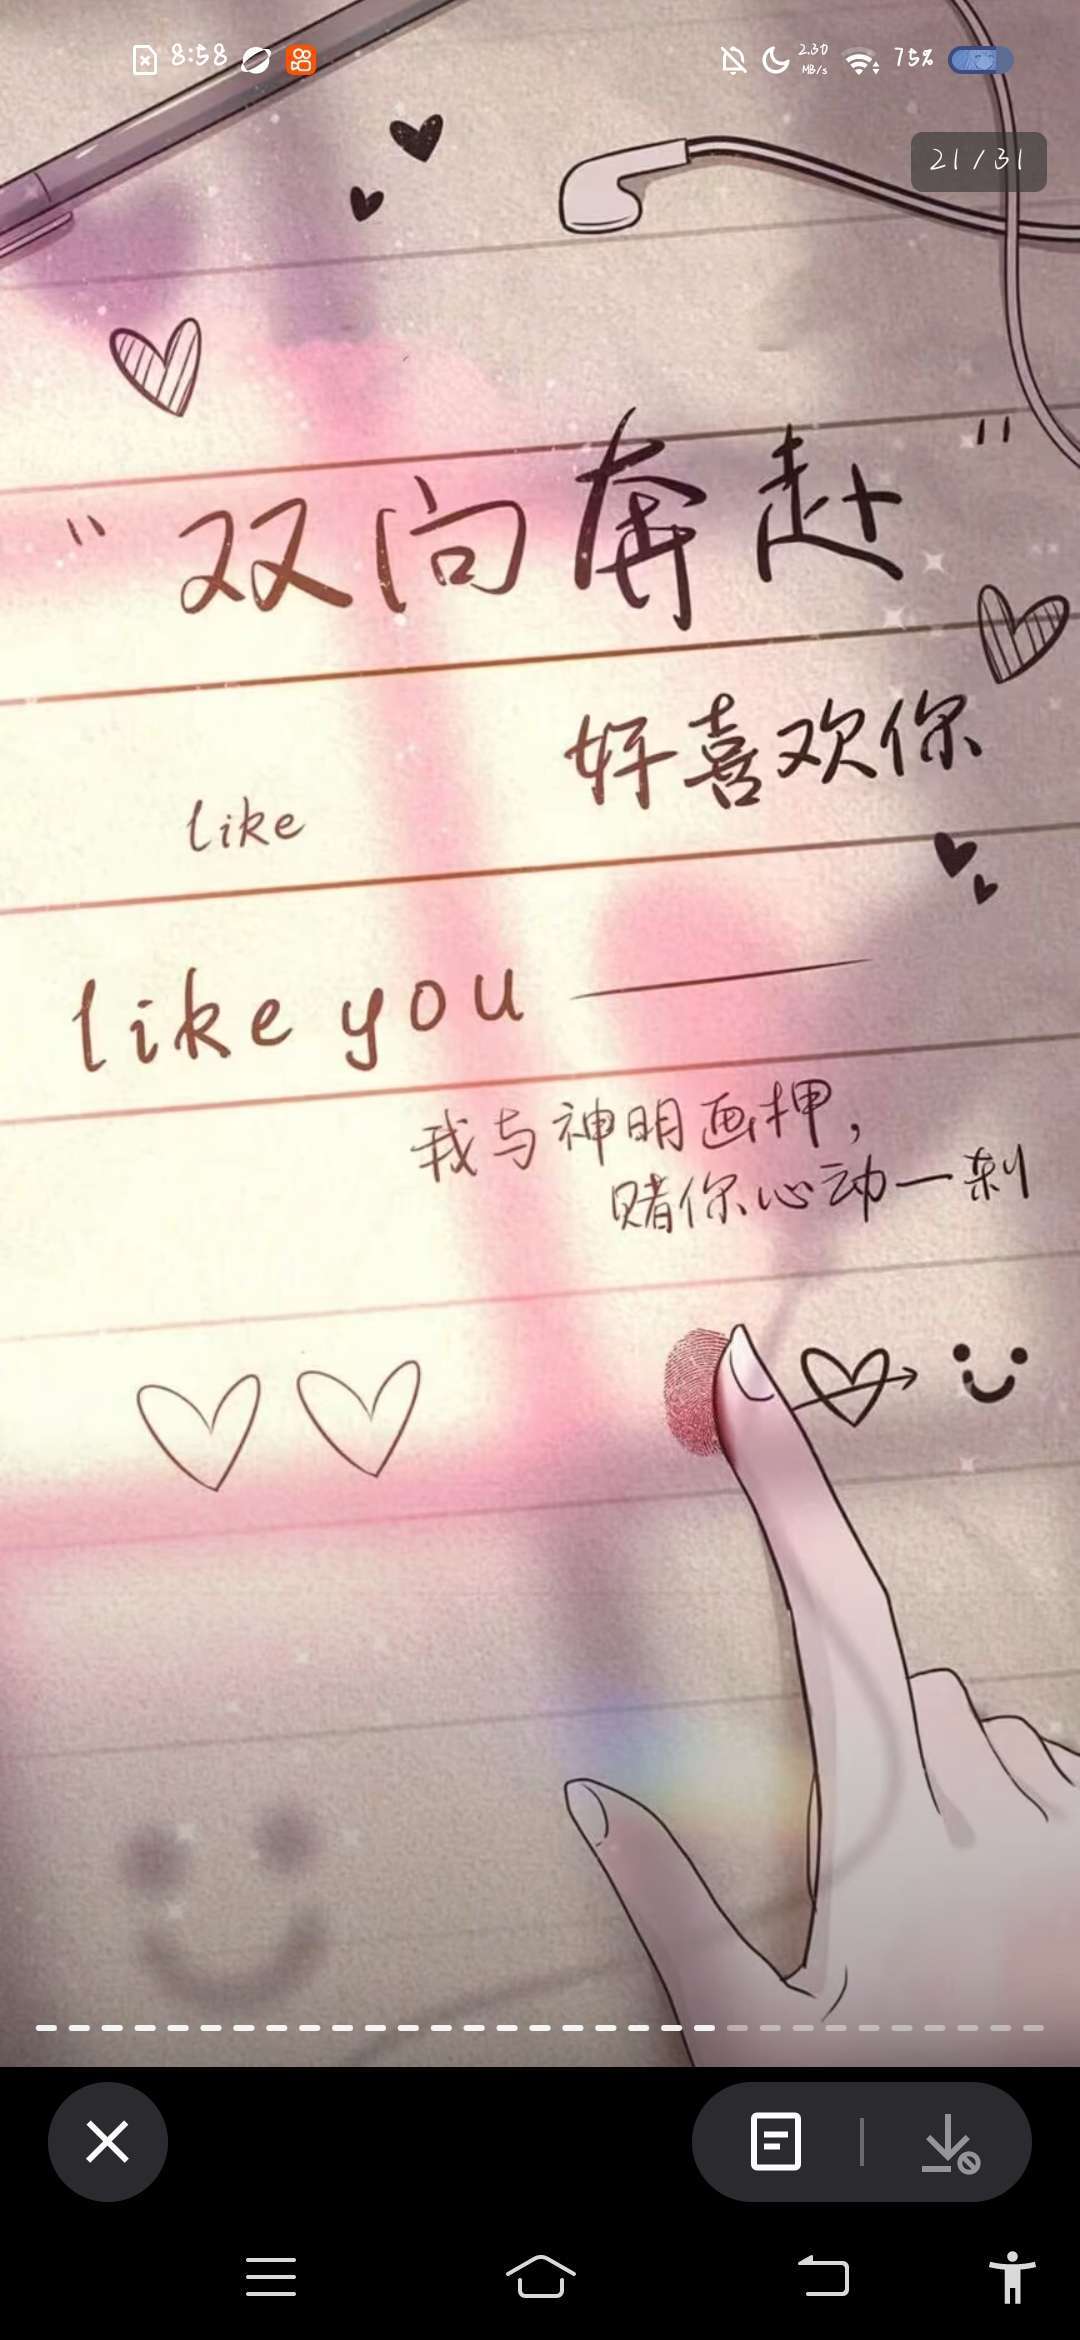 8:58
2.30
MB/s
75%
21/31
"双向奔赴"
好喜欢你
like
like you ——
我与神明画押，
赌你心动一刹